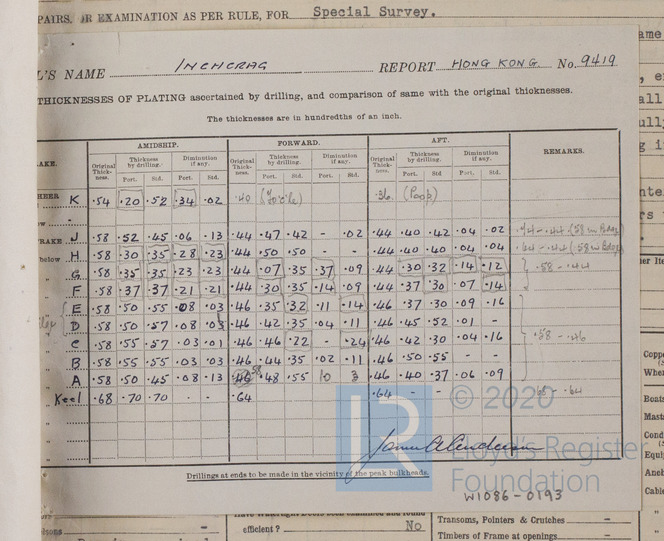 PAIRS, OR EXAMINATION AS PER RULE, FOR Special Survey.
L'S NAME INCHCRAG REPORT HONG KONG No. 9419
THICKNESSES OF PLATING ascertained by drilling, and comparison of same with the original thicknesses.
The thicknesses are in hundredths of an inch.
AMIDSHIP. FORWARD. AFT. REMARKS.
RAKE. Original Thickness. Thickness by drilling. Diminution if any. Original Thickness. Thickness by drilling. Diminution if any. Original Thickness. Thickness by drilling. Diminution if any.
Port. Std. Port. Std. Port. Std. Port. Std. Port. Std. Port. Std.
HEER K .54 .20 .52 .34 .02 .40 .36 (Poop)
RAKE J .58 .52 .45 .06 .13 .44 .47 .42 - .02 .44 .40 .42 .04 .02
below H .58 .30 .35 .28 .23 .44 .50 .50 - - .44 .40 .40 .04 .04
G .58 .35 .35 .23 .23 .44 .07 .35 .37 .09 .44 .30 .32 .14 .12 .58 - .44
F .58 .37 .37 .21 .21 .44 .30 .35 .14 .09 .44 .37 .30 .07 .14
E .58 .50 .55 .08 .03 .46 .35 .32 .11 .14 .46 .37 .30 .09 .16
D .58 .50 .57 .08 .03 .46 .42 .35 .04 .11 .46 .45 .52 .01 -
C .58 .55 .57 .03 .01 .46 .46 .22 - .24 .46 .42 .30 .04 .16 .58 - .46
B .58 .55 .55 .03 .03 .46 .44 .35 .02 .11 .46 .50 .55 - -
A .58 .50 .45 .08 .13 .46 .58 .48 .55 10 3 .46 .40 .37 .06 .09
Keel .68 .70 .70 - - .64 .64 - - .68 - .64
© 2020
Lloyd's Register
Foundation
Drillings at ends to be made in the vicinity of the peak bulkheads.
W1086-0193
efficient? No
Transoms, Pointers & Crutches
Timbers of Frame at openings